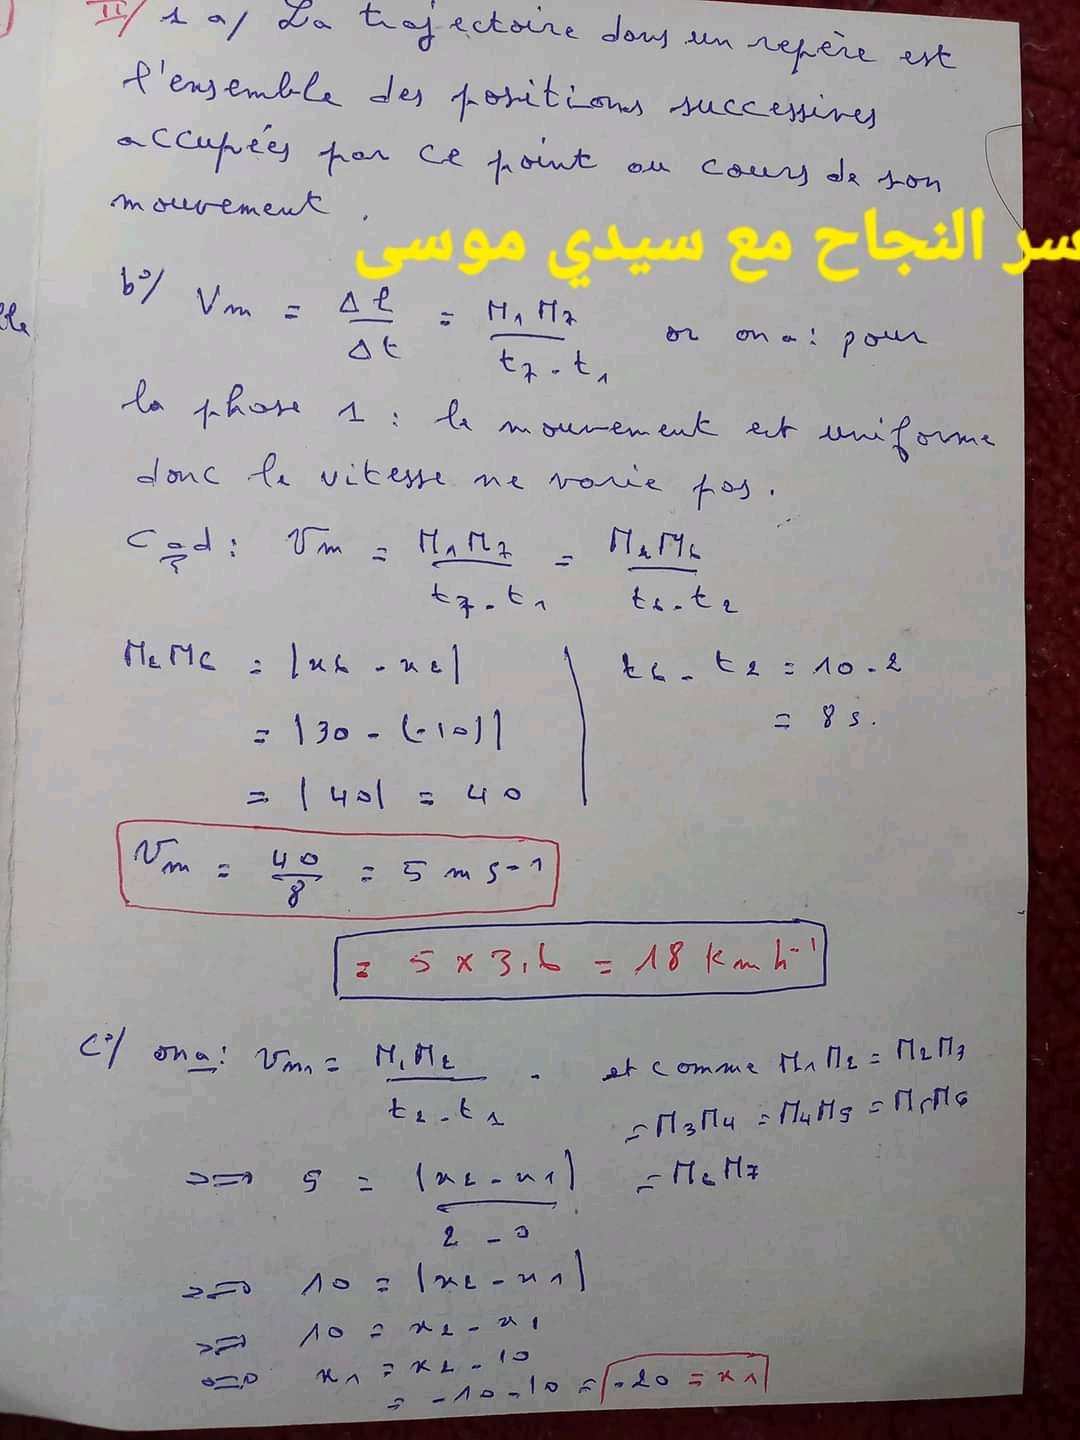 II/ 1 a/ La trajectoire dans un repère est
l'ensemble des positions successives
occupées par ce point au cours de son
mouvement.
سر النجاح مع سيدي موسى
b°/ Vm = Δl/Δt = M1M7/t7-t1 or on a: pour
la phase 1: le mouvement est uniforme
donc la vitesse ne varie pas.
C à d: Vm = M1M7/t7-t1 = M2M6/t6-t2
M2M6 = |x6 - x2|
= |30 - (-10)|
= |40| = 40
t6 - t2 = 10 - 2
= 8 s.
Vm = 40/8 = 5 m s-1
= 5 x 3,6 = 18 Km h-1
C°/ on a: Vm1 = M1M2/t2-t1. et comme M1M2 = M2M3
= M3M4 = M4M5 = M5M6
= M6M7
==> 5 = |x2 - x1|/2 - 0
==> 10 = |x2 - x1|
==> 10 = x2 - x1
x1 = x2 - 10
= -10 - 10 = -20 = x1